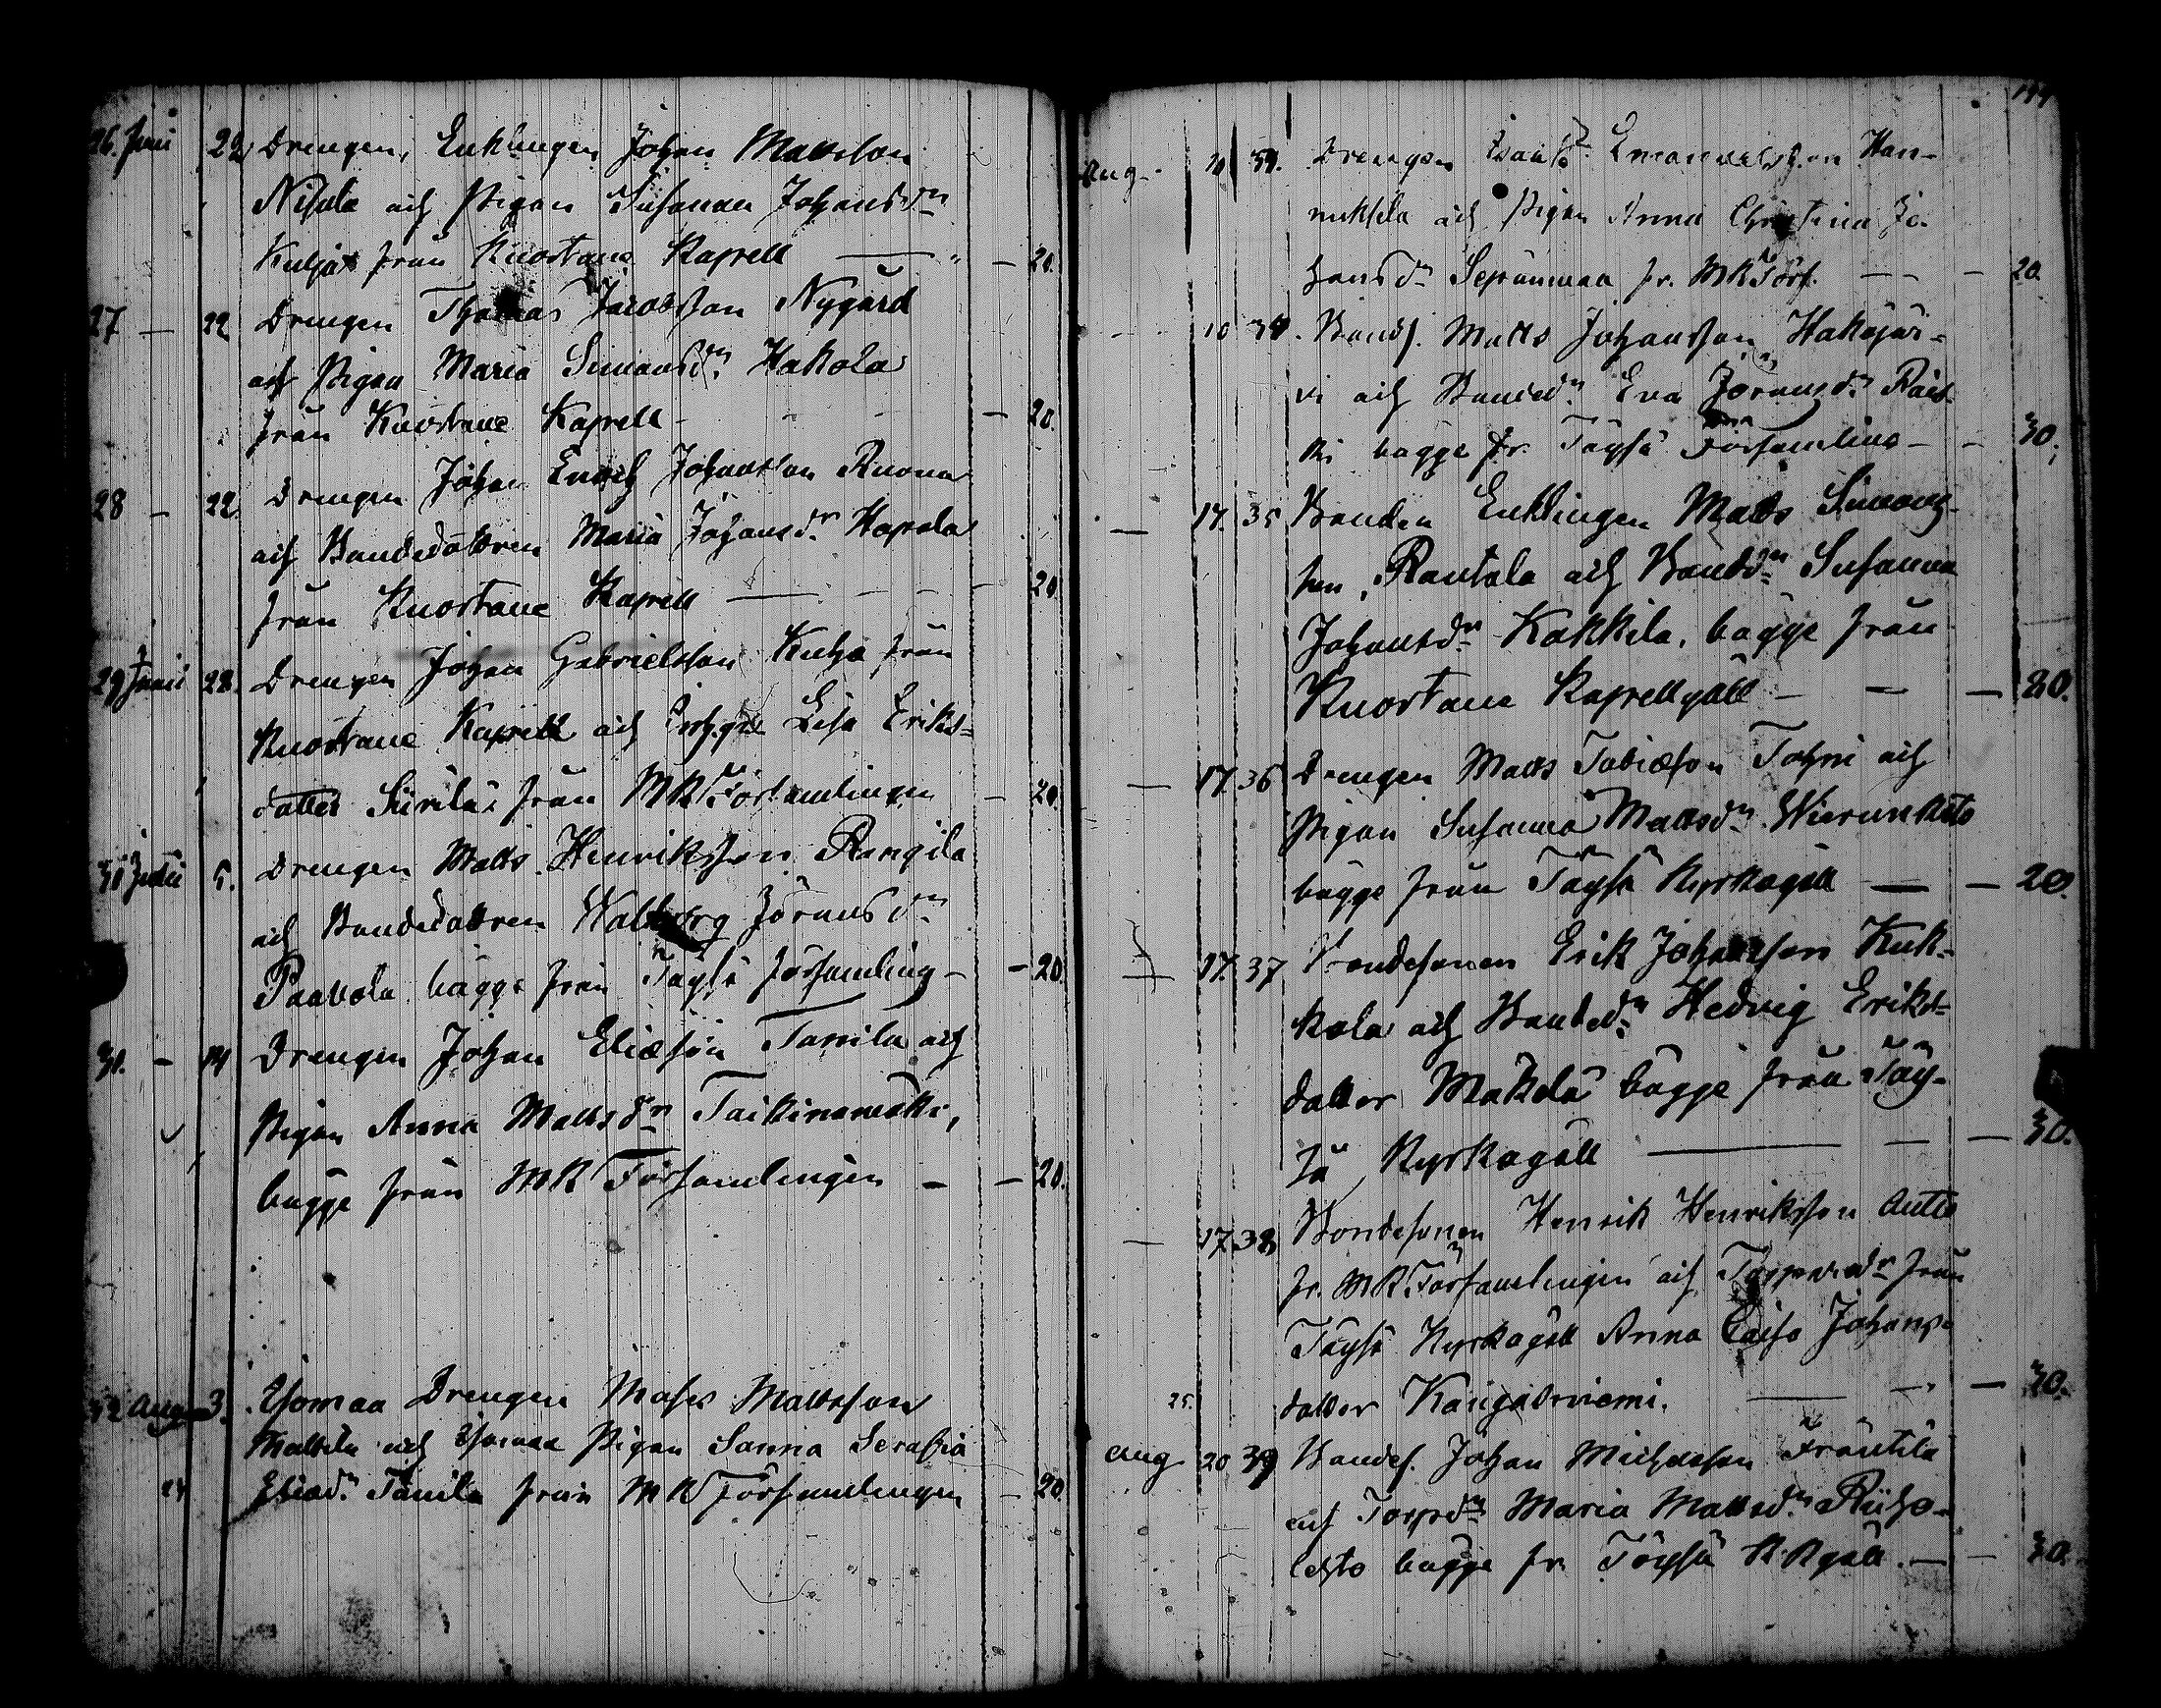 26. Juni 22 Drengen, Enklingen Johan Mattsson
Nisula och Pigan Susanna Johansdr
Kuljat från Kuortane Kapell — 20.
27 — 22 Drengen Thomas Jacobsson Nygård
och Pigan Maria Simonsdr Hakola
från Kuortane Kapell — 20.
28 — 22 Drengen Johan Enoch Johansson Ruona
och Bondedottren Maria Johansdr Hapala
från Kuortane Kapell — 20
29 Junii 28. Drengen Johan Gabrielsson Kuha från
Kuortane Kapell och Lisa Eriks-
dotter från MK Församlingen — 20
30 Julii 5. Drengen Matts Henriksson Rengila
och Bondedottren Walborg Jöransdr
Paavola bägge från Töysä församling — 20
31. — 14 Drengen Johan Eliæson Tanila och
Pigan Anna Mattsdr Taikinamäki,
bägge från MK Församlingen — 20.
32 Aug 3. Drengen Moses Mattsson
Mattila och Pigan Sanna Serafia
24 Eliædr Tanila från MK Församlingen — 20
144
Aug. 10 Drengen Emanuelsson Han-
nuksela och Pigan Anna Christina Jo-
hansdr fr. MK Förs. — 20
— 10 34. Bondes. Matts Johansson Hakojär-
vi och Bonded. Eva Jöransdr Rais-
ki bägge fr. Töysä Församling — 30.
— 17. 35 Bonden Enklingen Matts Simons-
son Rantala och Bondedr Susanna
Johansdr Kakkila, bägge från
Kuortane Kapellgäll — 20.
— 17. 36 Drengen Matts Tobiæson Tohni och
Pigan Susanna Mattsdr Wierunketo
bägge från Töysä Kyrkogäll — 20.
— 17. 37 Bondesonen Erik Johansson Kuk-
kola och Bondedr Hedvig Eriks-
dotter Mäkelä bägge från Töy-
sä Kyrkogäll — 30.
— 17. 38 Bondesonen Henrik Henriksson Autio
fr. MK Församlingen och Torparedr från
Töysä Kyrkogäll Anna Caisa Johans-
25. dotter Kangasniemi. — 30.
Aug 20 39 Bondes. Johan Michelsson Fräntilä
och Torpdr Maria Mattsdr Riiho-
lehto bägge fr. Töysä K.Kgäll. — 30.